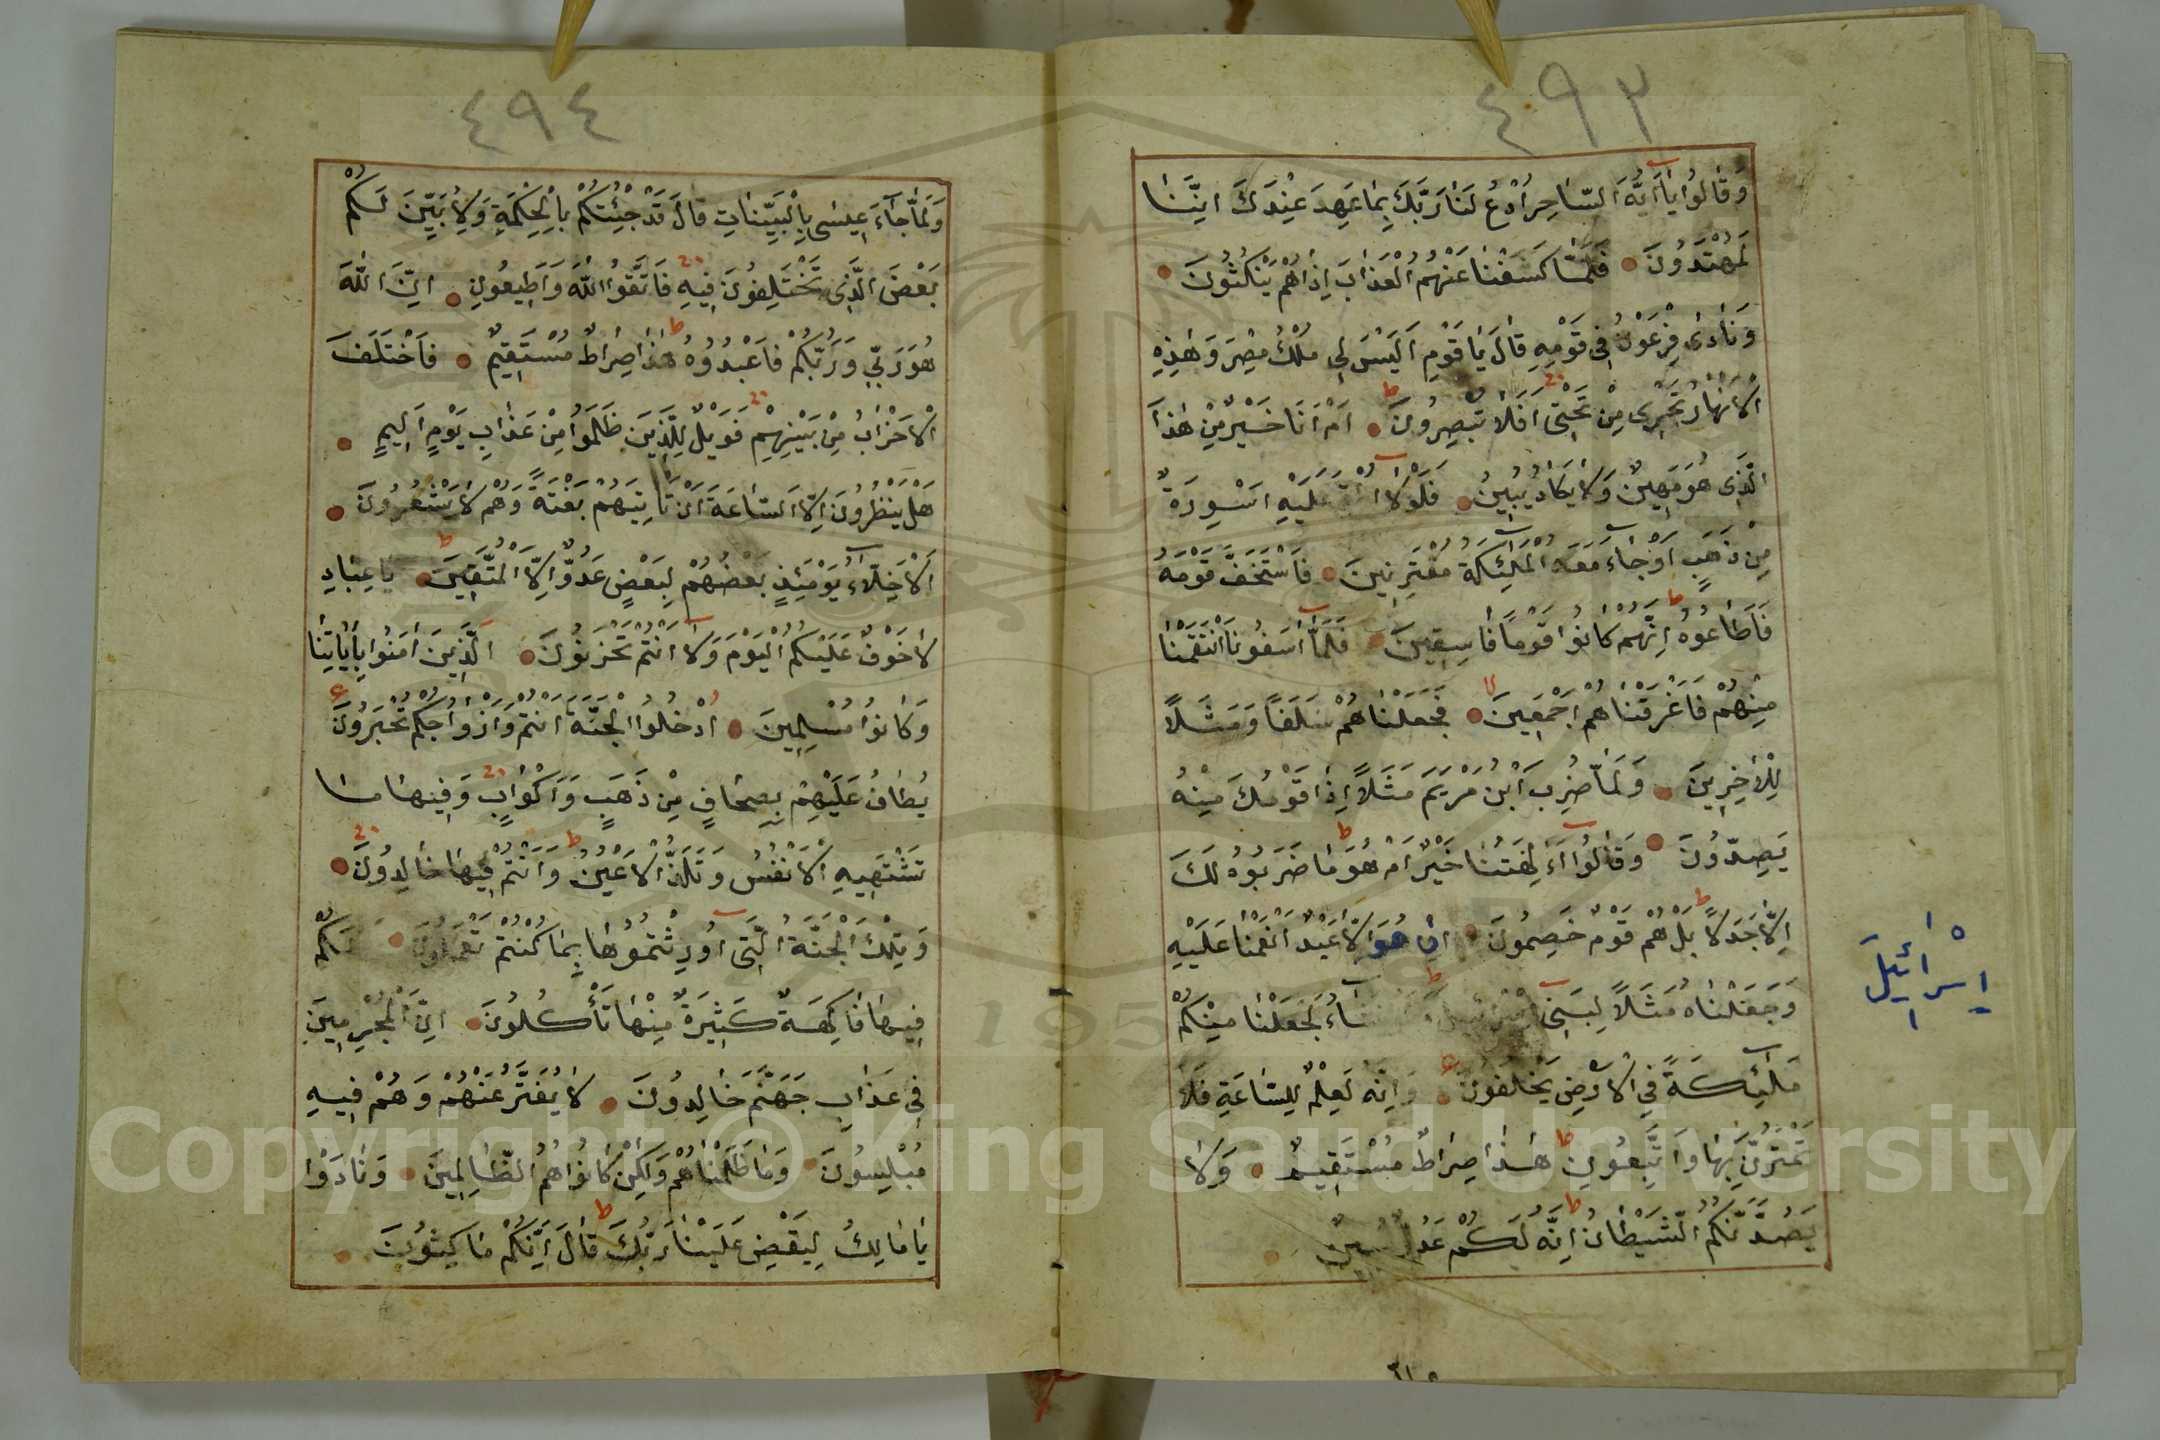 ٤٩٣
وَقَالُوا يَا أَيُّهَ السَّاحِرُ ادْعُ لَنَا رَبَّكَ بِمَا عَهِدَ عِنْدَكَ اِنَّنَا
لَمُهْتَدُونَ فَلَمَّا كَشَفْنَا عَنْهُمُ الْعَذَابَ اِذَا هُمْ يَنْكُثُونَ
وَنَادٰى فِرْعَوْنُ فِي قَوْمِهِ قَالَ يَا قَوْمِ اَلَيْسَ لِي مُلْكُ مِصْرَ وَهٰذِهِ
الْاَنْهَارُ تَجْرِي مِنْ تَحْتِي اَفَلَا تُبْصِرُونَ اَمْ اَنَا خَيْرٌ مِنْ هٰذَا
الَّذِي هُوَ مَهِينٌ وَلَا يَكَادُ يُبِينُ فَلَوْلَا عَلَيْهِ اَسْوِرَةٌ
مِنْ ذَهَبٍ اَوْ جَاءَ مَعَهُ الْمَلٰئِكَةُ مُقْتَرِنِينَ فَاسْتَخَفَّ قَوْمَهُ
فَاَطَاعُوهُ اِنَّهُمْ كَانُوا قَوْمًا فَاسِقِينَ فَلَمَّا اٰسَفُونَا انْتَقَمْنَا
مِنْهُمْ فَاَغْرَقْنَاهُمْ اَجْمَعِينَ فَجَعَلْنَاهُمْ سَلَفًا وَمَثَلًا
لِلْاٰخِرِينَ وَلَمَّا ضُرِبَ ابْنُ مَرْيَمَ مَثَلًا اِذَا قَوْمُكَ مِنْهُ
يَصِدُّونَ وَقَالُوا ءَاٰلِهَتُنَا خَيْرٌ اَمْ هُوَ مَا ضَرَبُوهُ لَكَ
اِلَّا جَدَلًا بَلْ هُمْ قَوْمٌ خَصِمُونَ اِنْ هُوَ اِلَّا عَبْدٌ اَنْعَمْنَا عَلَيْهِ
وَجَعَلْنَاهُ مَثَلًا لِبَنِي لَجَعَلْنَا مِنْكُمْ
اِسْرَائِيلَ
مَلٰئِكَةً فِي الْاَرْضِ يَخْلُفُونَ وَاِنَّهُ لَعِلْمٌ لِلسَّاعَةِ فَلَا
تَمْتَرُنَّ بِهَا وَاتَّبِعُونِ هٰذَا صِرَاطٌ مُسْتَقِيمٌ وَلَا
يَصُدَّنَّكُمُ الشَّيْطَانُ اِنَّهُ لَكُمْ عَدُوٌّ مُبِينٌ
٤٩٤
وَلَمَّا جَاءَ عِيسٰى بِالْبَيِّنَاتِ قَالَ قَدْ جِئْتُكُمْ بِالْحِكْمَةِ وَلِاُبَيِّنَ لَكُمْ
بَعْضَ الَّذِي تَخْتَلِفُونَ فِيهِ فَاتَّقُوا اللّٰهَ وَاَطِيعُونِ اِنَّ اللّٰهَ
هُوَ رَبِّي وَرَبُّكُمْ فَاعْبُدُوهُ هٰذَا صِرَاطٌ مُسْتَقِيمٌ فَاخْتَلَفَ
الْاَحْزَابُ مِنْ بَيْنِهِمْ فَوَيْلٌ لِلَّذِينَ ظَلَمُوا مِنْ عَذَابِ يَوْمٍ اَلِيمٍ
هَلْ يَنْظُرُونَ اِلَّا السَّاعَةَ اَنْ تَاْتِيَهُمْ بَغْتَةً وَهُمْ لَا يَشْعُرُونَ
اَلْاَخِلَّاءُ يَوْمَئِذٍ بَعْضُهُمْ لِبَعْضٍ عَدُوٌّ اِلَّا الْمُتَّقِينَ يَا عِبَادِ
لَا خَوْفٌ عَلَيْكُمُ الْيَوْمَ وَلَا اَنْتُمْ تَحْزَنُونَ اَلَّذِينَ اٰمَنُوا بِاٰيَاتِنَا
وَكَانُوا مُسْلِمِينَ اُدْخُلُوا الْجَنَّةَ اَنْتُمْ وَاَزْوَاجُكُمْ تُحْبَرُونَ
يُطَافُ عَلَيْهِمْ بِصِحَافٍ مِنْ ذَهَبٍ وَاَكْوَابٍ وَفِيهَا مَا
تَشْتَهِيهِ الْاَنْفُسُ وَتَلَذُّ الْاَعْيُنُ وَاَنْتُمْ فِيهَا خَالِدُونَ
وَتِلْكَ الْجَنَّةُ الَّتِي اُورِثْتُمُوهَا بِمَا كُنْتُمْ تَعْمَلُونَ لَكُمْ
فِيهَا فَاكِهَةٌ كَثِيرَةٌ مِنْهَا تَاْكُلُونَ اِنَّ الْمُجْرِمِينَ
فِي عَذَابِ جَهَنَّمَ خَالِدُونَ لَا يُفَتَّرُ عَنْهُمْ وَهُمْ فِيهِ
مُبْلِسُونَ وَمَا ظَلَمْنَاهُمْ وَلٰكِنْ كَانُوا هُمُ الظَّالِمِينَ وَنَادَوْا
يَا مَالِكُ لِيَقْضِ عَلَيْنَا رَبُّكَ قَالَ اِنَّكُمْ مَاكِثُونَ
Copyright © King Saud University